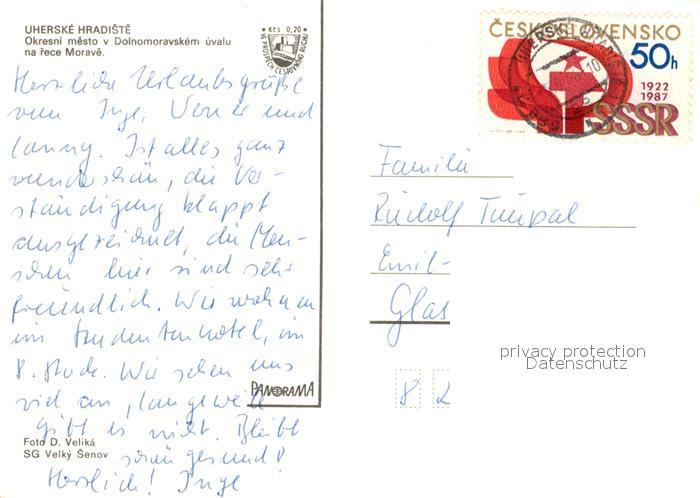 UHERSKÉ HRADIŠTĚ
Okresní město v Dolnomoravském úvalu
na řece Moravě.
Kčs 0,20
VE PROSPĚCH CESTOVNÍHO RUCHU
Herzliche Urlaubsgrüße
von Inge, und
Conny. Ist alles ganz
wunderschön, die Ver-
ständigung klappt
ausgezeichnet, die Men-
schen hier sind sehr
freundlich. Wir wohnen
im Studentenhotel, im
8. Stock. Wir sehen uns
viel an, langeweile
gibt es nicht. Bleibt
schön gesund!
Herzlich! Inge
Foto D. Veliká
SG Velký Šenov
PANORAMA
ČESKOSLOVENSKO
50h
1922
1987
SSSR
Familie
Rudolf
Emil-
Glas
8
privacy protection
Datenschutz